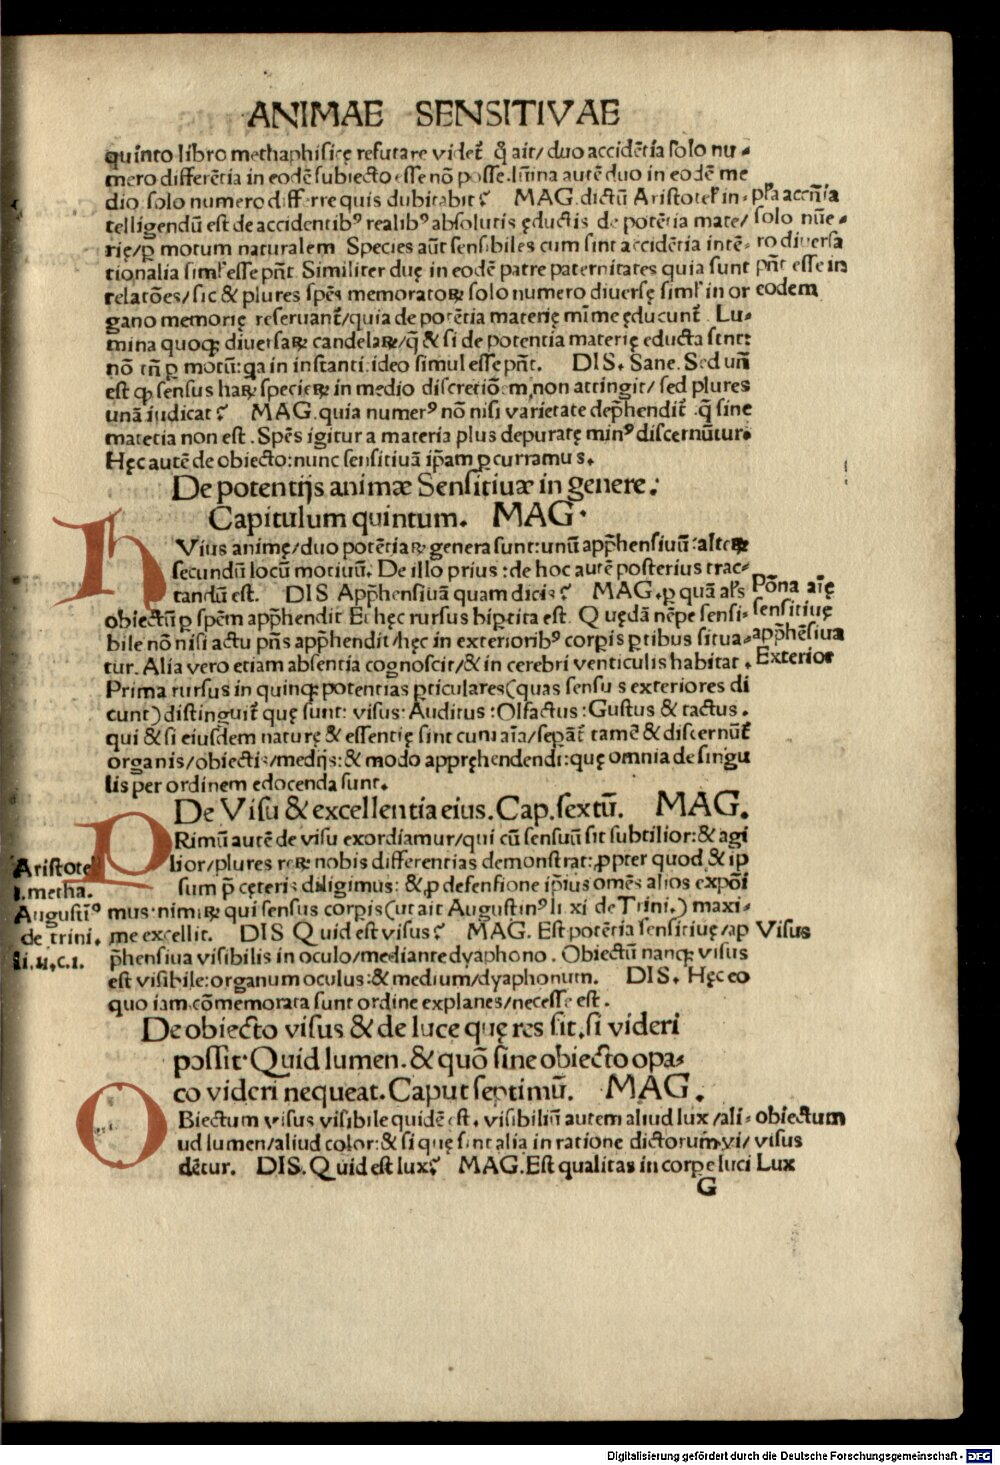 ANIMAE SENSITIVAE
quinto libro methaphisicę refutare videt᷑ q̄ ait/ duo accidētia solo nu-
mero differētia in eodē subiecto esse nō posse. lumina autē duo in eodē me
dio solo numero differre quis dubitabit? MAG. dictū Aristotel' in-
telligendū est de accidentibꝰ realibꝰ absolutis ęductis de potētia mate/
rię/ꝑ motum naturalem Species aūt sensibiles cum sint accidētia intē-
tionalia siml' esse pn̄t. Similiter duę in eodē patre paternitates quia sunt
relatōes/ sic & plures spēs memoratoꝝ solo numero diuersę siml' in or
gano memorię reseruant᷑/quia de potētia materię mīme ęducunt᷑. Lu-
mina quoqꝫ diuersaꝝ candelaꝝ/q̄ & si de potentia materię educta sint:
nō tn̄ ꝑ motū: qa in instanti: ideo simul esse pn̄t. DIS. Sane. Sed un̄
est ꝙ sensus haꝝ specieꝝ in medio discretiōem non attingit/ sed plures
unā iudicat? MAG. quia numerꝰ nō nisi varietate dep̄hendit᷑ :q̄ sine
materia non est. Spēs igitur a materia plus depuratę minꝰ discernūtur.
Hęc autē de obiecto: nunc sensitiuā ip̄am ꝑcurramus.
De potentijs animæ Sensitiuæ in genere:
Capitulum quintum. MAG.
HVius animę/duo potētiaꝝ genera sunt: unū app̄hensiuū: alteꝝ
secundū locū motiuū. De illo prius: de hoc autē posterius trac-
tandū est. DIS App̄hensiuā quam dicis? MAG. ꝑ quā al's
obiectū ꝑ spēm app̄hendit Et hęc rursus biꝑtita est. Quędā nēpe sensi-
bile nō nisi actu pn̄s app̄hendit/hęc in exterioribꝰ corꝑis ꝑtibus situa-
tur. Alia vero etiam absentia cognoscit/& in cerebri venticulis habitat.
Prima rursus in quinqꝫ potentias ꝑticulares(quas sensus exteriores di
cunt) distinguit᷑ quę sunt: visus: Auditus: Olfactus: Gustus & tactus.
qui & si eiusdem naturę & essentię sint cum aīa/sepāt᷑ tamē & discernūt᷑
organis/obiectis/medijs: & modo appręhendendi: quę omnia de singu
lis per ordinem edocenda sunt.
De Visu & excellentia eius. Cap. sextū. MAG.
PRimū autē de visu exordiamur/qui cū sensuū sit subtilior: & agi
lior/plures reꝝ nobis differentias demonstrat: ꝓpter quod & ip
sum p̄ cęteris diligimus: & ꝓ defensione ip̄ius omēs alios expōi
mus: nimiꝝ qui sensus corꝑis(ut ait Augustinꝰ li. xi de Trini.) maxi-
me excellit. DIS Quid est visus? MAG. Est potētia sensitiuę/ap
p̄hensiua visibilis in oculo/mediante dyaphono. Obiectū nanqꝫ visus
est visibile: organum oculus: & medium/dyaphonum. DIS. Hęc eo
quo iam cōmemorata sunt ordine explanes/necesse est.
De obiecto visus & de luce quę res sit, si videri
possit. Quid lumen. & quō sine obiecto opa-
co videri nequeat. Caput septimū. MAG.
OBiectum visus visibile quidē est. visibiliū autem aliud lux/ali-
ud lumen/aliud color: & si quę sint alia in ratione dictorum vi/
dētur. DIS. Quid est lux? MAG. Est qualitas in corꝑe luci
G
pl'ra accn̄ia
solo nūe-
ro diuersa
pn̄t esse in
eodem
Pōna aīę
sensitiuę
app̄hēsiua
Exterior
Aristotel
i. metha.
Augustīꝰ
de trini.
li. xi. c. 1.
Visus
obiectum
visus
Lux
Digitalisierung gefördert durch die Deutsche Forschungsgemeinschaft - DFG